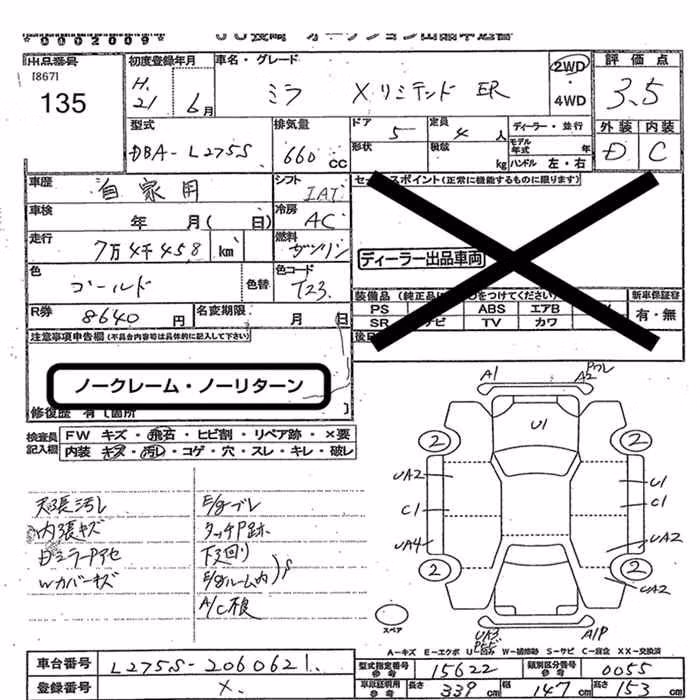 *0002009*
JU長崎 オークション出品申込書
出品番号
[867]
135
初度登録年月
H.
21 6月
車名・グレード
ミラ Xリミテッド ER
2WD
・
4WD
評価点
3.5
外装 内装
D C
型式
DBA-L275S
排気量
660 CC
ドア
5
定員
4 人
形状
積載
kg
ディーラー・並行
モデル年式 年
ハンドル 左・右
車歴
自家用
シフト
IAT
車検
年 月( 日)
冷房
AC
走行
7万4千458 km
燃料
ガソリン
色
ゴールド
色替
色コード
T23
R券
8640 円
名変期限
月 日
セールスポイント(正常に機能するものに限ります)
ディーラー出品車両
装備品
PS ABS エアB
SR ナビ TV カワ
新車保証書
有・無
注意事項申告欄(不具合内容等は具体的に記入して下さい)
ノークレーム・ノーリターン
修復歴 有[箇所 ]
検査員記入欄
FW キズ・飛石・ヒビ割・リペア跡・×要
内装 キズ・汚レ・コゲ・穴・スレ・キレ・破レ
天張汚レ
内張キズ
Wカバーキズ
E/gブレ
タッチP跡
下廻り
E/gルーム内 S
A1
A2
U1
2
2
UA2
C1
UA4
U1
C1
UA2
2
2
UA2
UA3
A1P
スペア
A-キズ E-エクボ U-凹 W-補修跡 S-サビ C-腐食 XX-交換済
車台番号
L275S-2060621
登録番号
X.
型式指定番号
参考
15622
類別区分番号
参考
0055
車庫証明用
参考
長さ
339 cm
幅
147 cm
高さ
153 cm